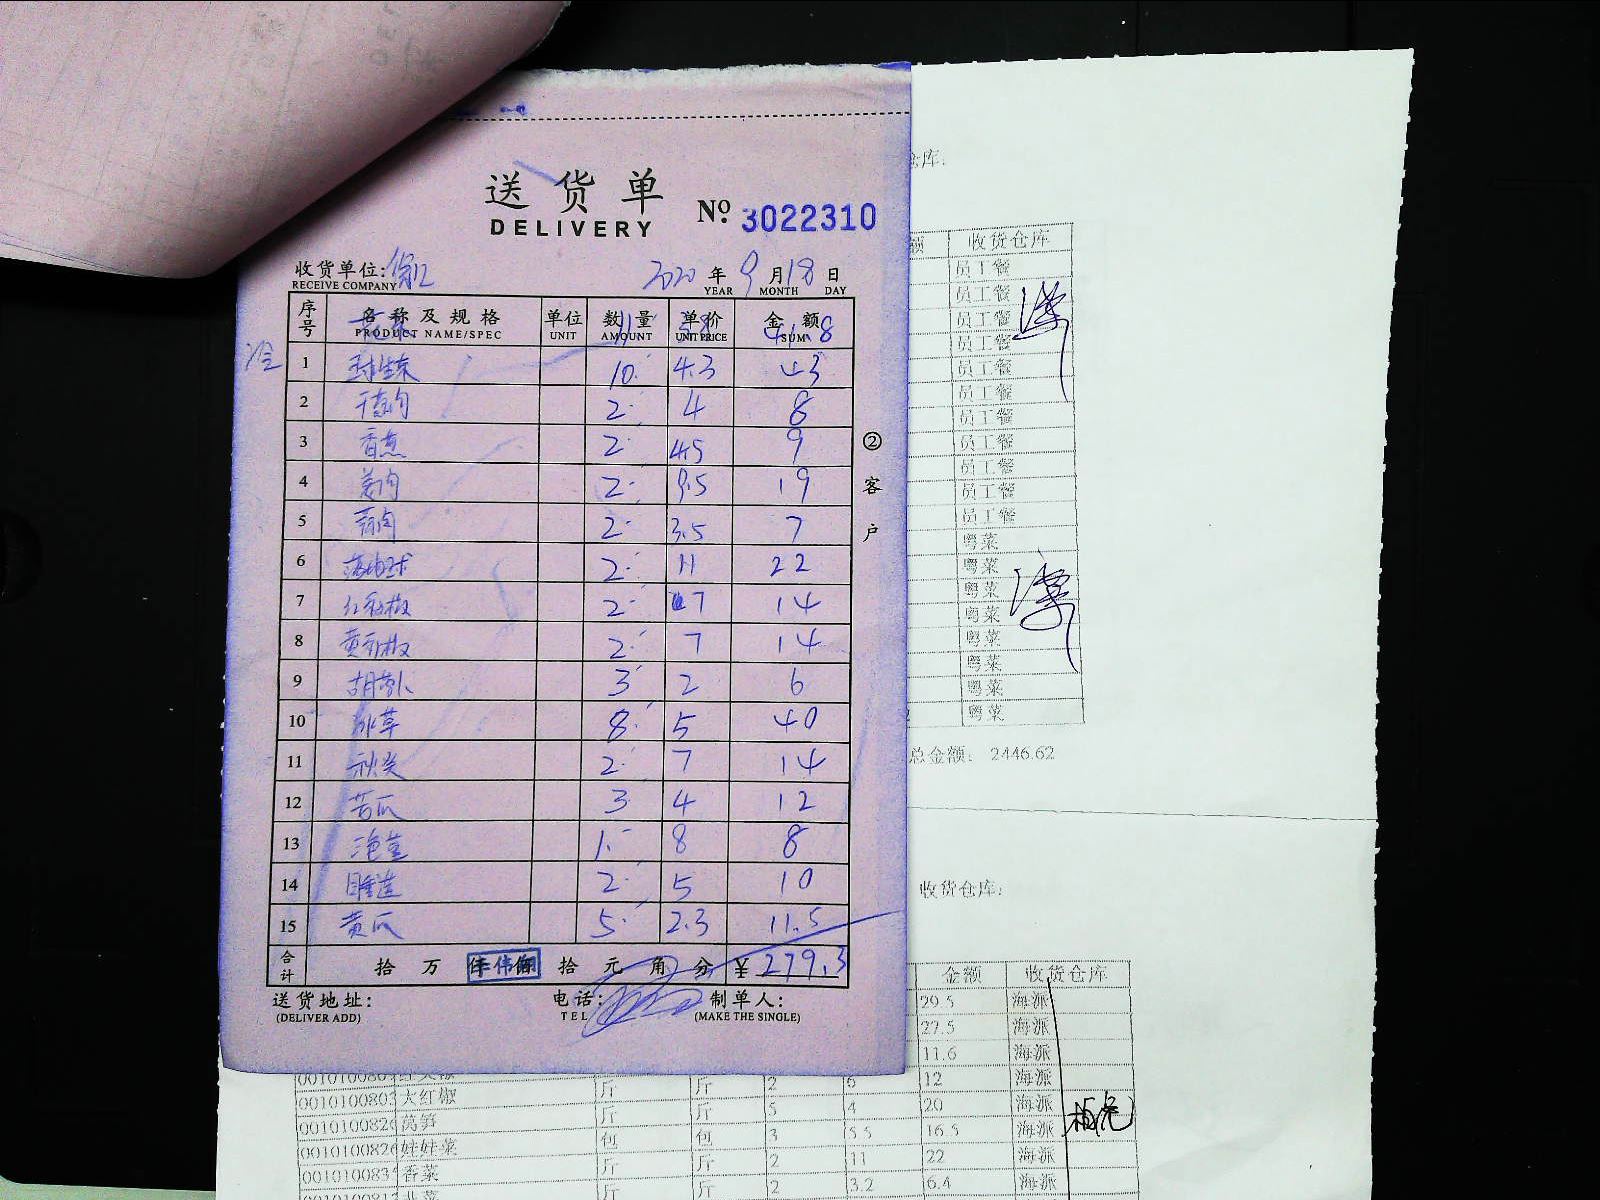 送货单
DELIVERY
№ 3022310
收货单位:
RECEIVE COMPANY
2020 年 9 月 18 日
YEAR MONTH DAY
序号 名称及规格 单位 数量 单价 金额
PRODUCT NAME/SPEC UNIT AMOUNT UNIT PRICE SUM
冷
1 球生菜 10 4.3 43
2 干葱肉 2 4 8
3 香葱 2 4.5 9
4 姜肉 2 9.5 19
5 蒜肉 2 3.5 7
6 2 11 22
7 红彩椒 2 7 14
8 黄彩椒 2 7 14
9 胡萝卜 3 2 6
10 冰草 8 5 40
11 秋葵 2 7 14
12 苦瓜 3 4 12
13 1 8 8
14 睡莲 2 5 10
15 黄瓜 5 2.3 11.5
合计 拾 万 拾 元 角 分 ¥ 279.3
送货地址: 电话: 制单人:
(DELIVER ADD) TEL (MAKE THE SINGLE)
②客户
仓库:
额 收货仓库
员工餐
员工餐
员工餐
员工餐
员工餐
员工餐
员工餐
员工餐
员工餐
员工餐
员工餐
粤菜
粤菜
粤菜
粤菜
粤菜
粤菜
粤菜
粤菜
总金额: 2446.62
收货仓库:
金额 收货仓库
29.5 海派
27.5 海派
11.6 海派
斤 斤 2 6 12 海派
大红椒 斤 斤 5 4 20 海派
莴笋 包 包 3 5.5 16.5 海派
娃娃菜 斤 斤 2 11 22 海派
香菜 斤 斤 2 3.2 6.4 海派